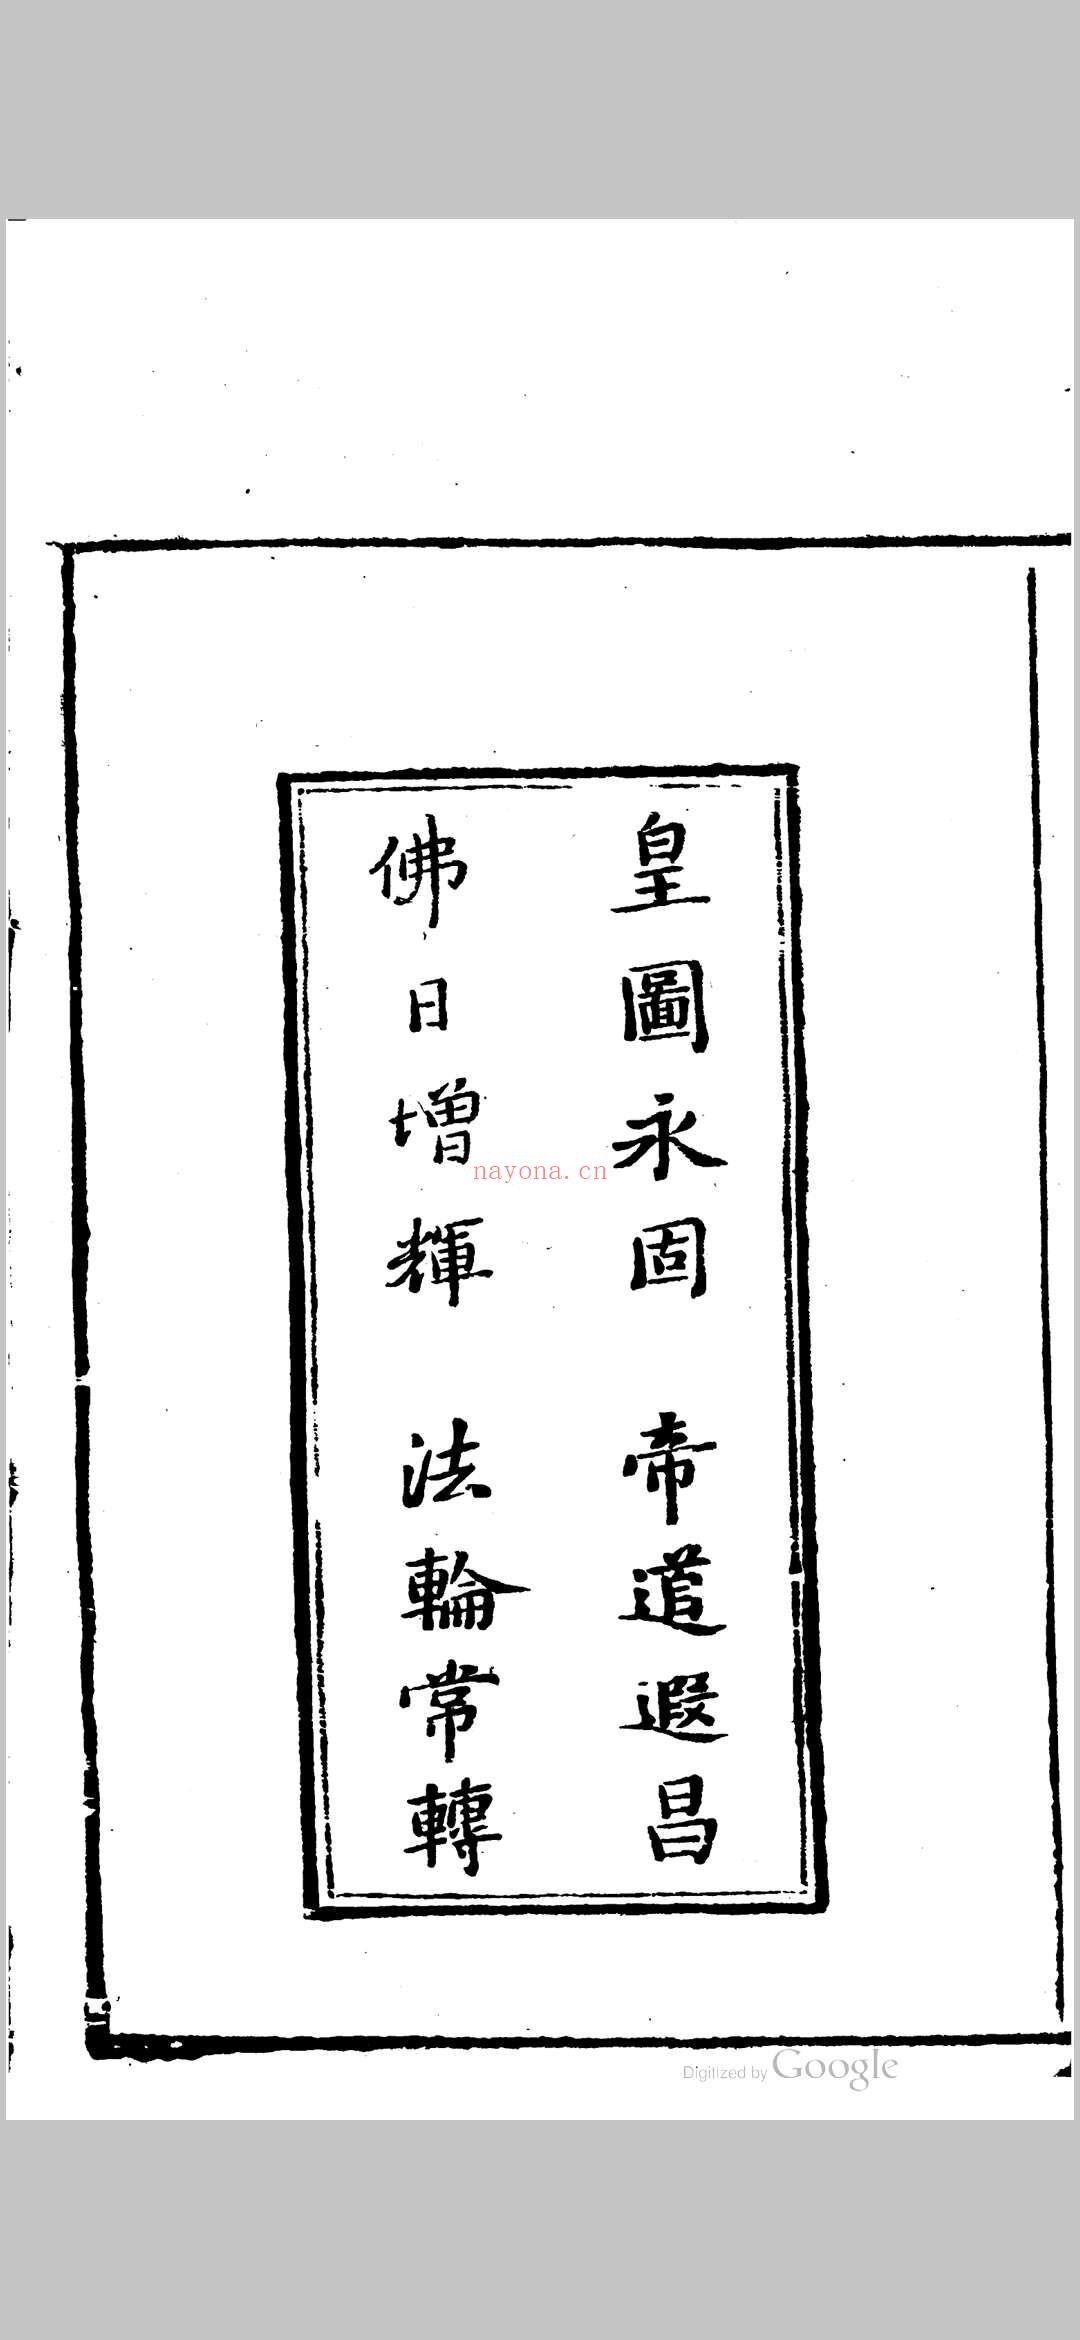 皇圖永固 帝道遐昌
佛日增輝 法輪常轉
nayona.cn
Digitized by Google